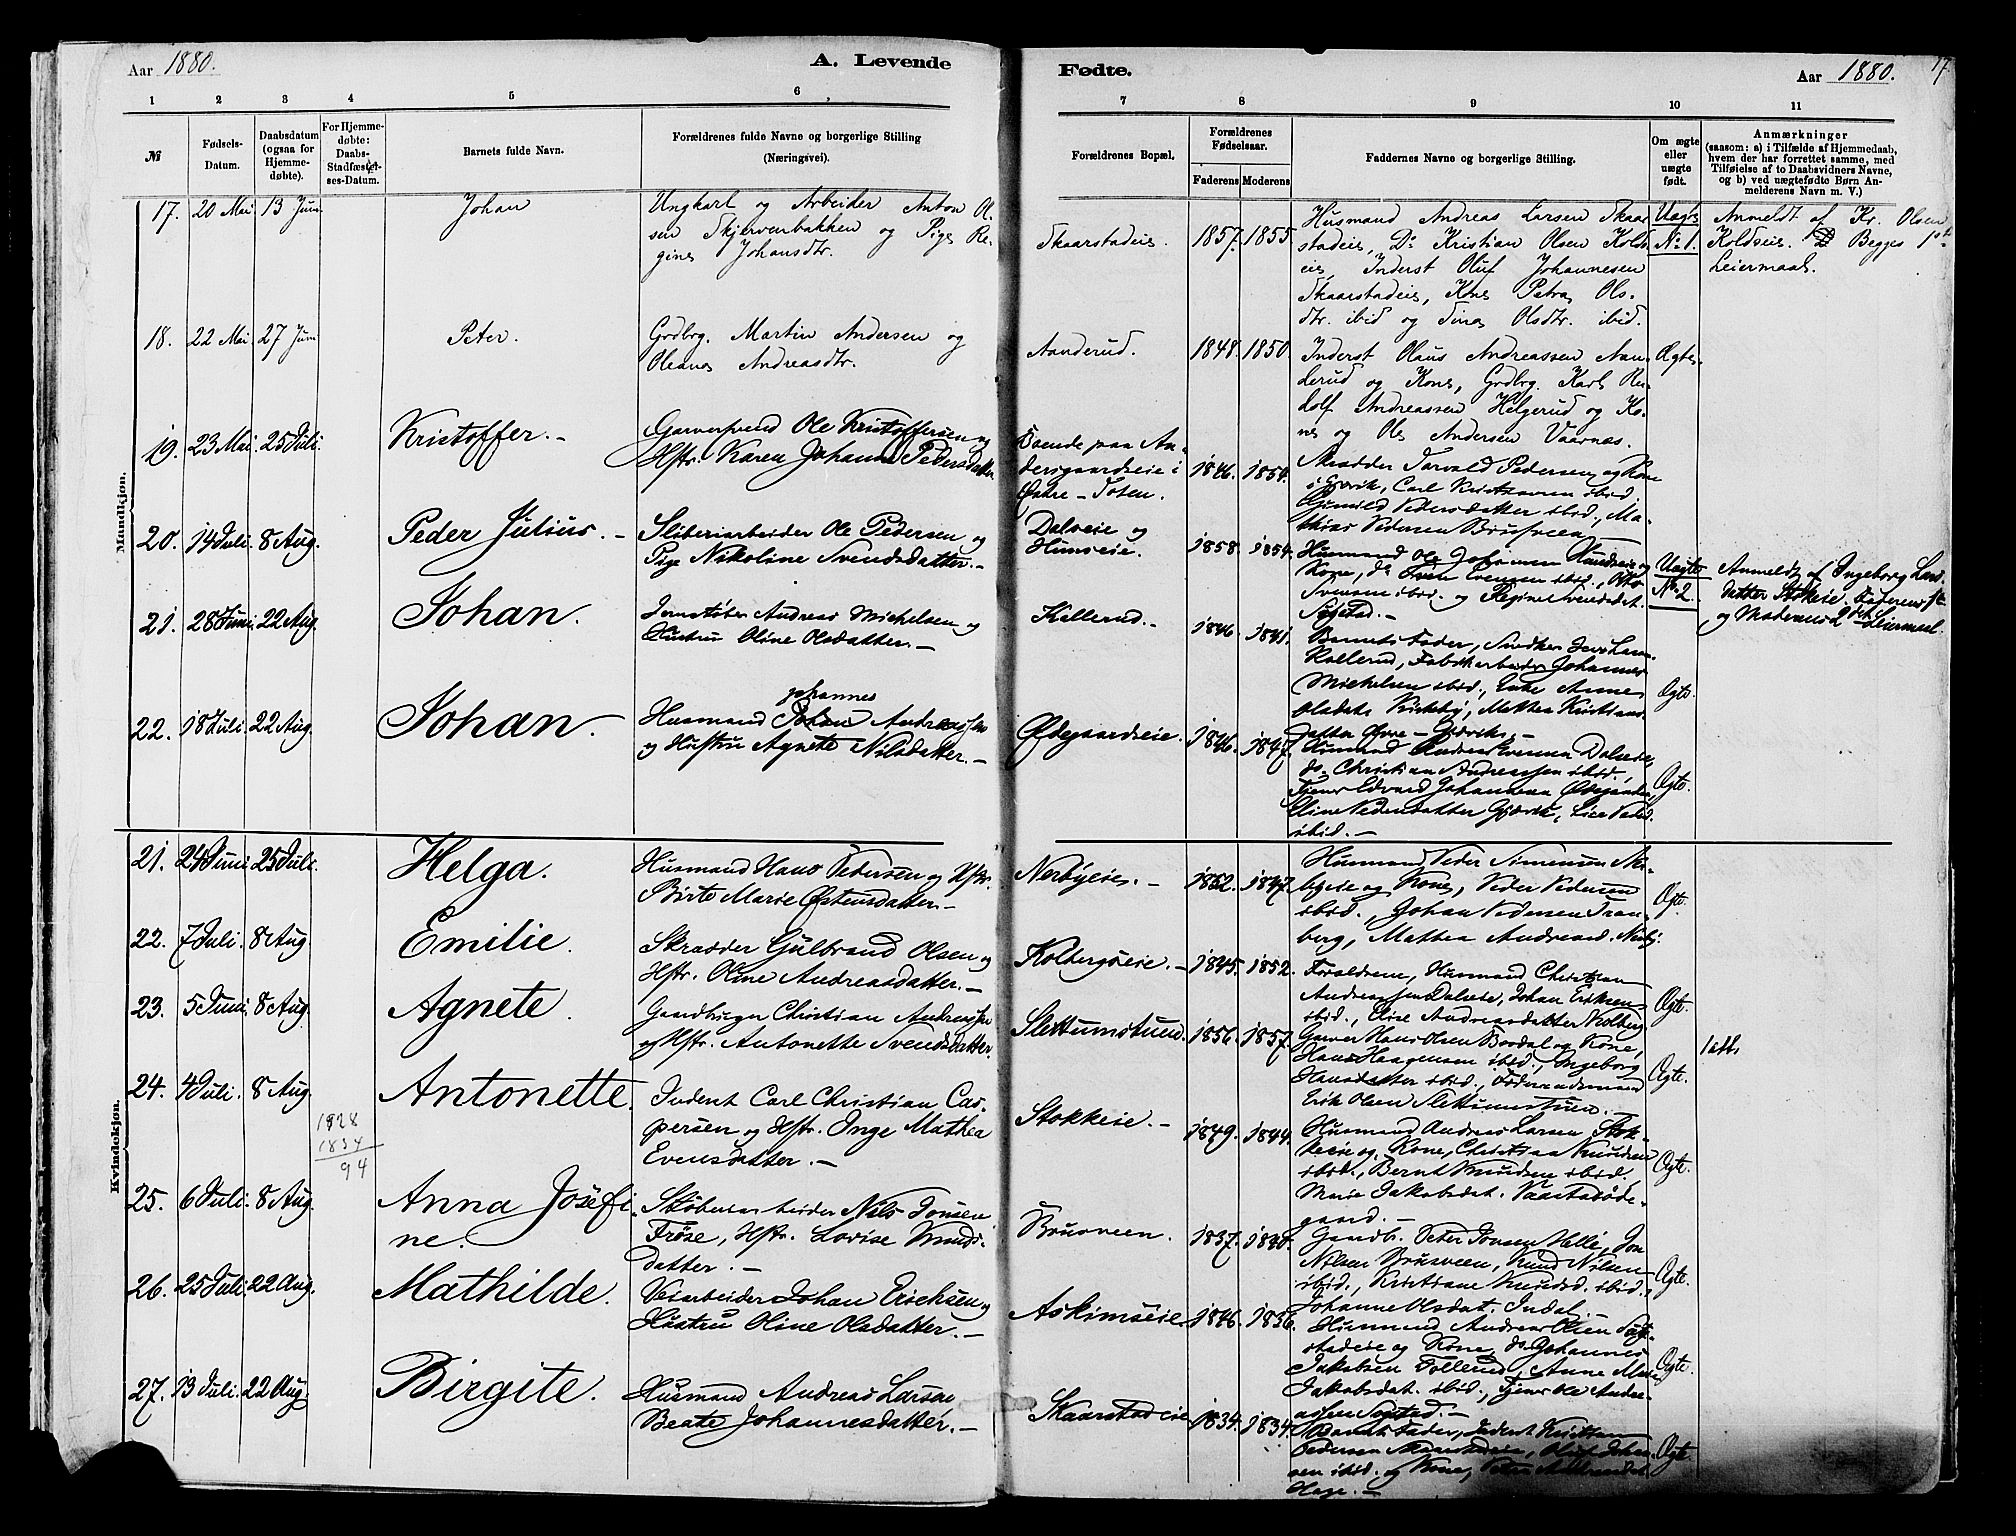 Aar 1880.
A. Levende
Fødte.
Aar 1880.
17.
1 2 3 4 5 6
7 8 9 10 11
№
Fødsels-
Datum.
Daabsdatum
(ogsaa for
Hjemme-
døbte).
For Hjemme-
døbte:
Daabs-
Stadfæstel-
ses-Datum.
Barnets fulde Navn.
Forældrenes fulde Navne og borgerlige Stilling
(Næringsvei).
Forældrenes Bopæl.
Forældrenes
Fødselsaar.
Faderens Moderens
Faddernes Navne og borgerlige Stilling.
Om ægte
eller
uægte
født.
Anmærkninger
(saasom: a) i Tilfælde af Hjemmedaab,
hvem der har forrettet samme, med
Tilføielse af to Daabsvidners Navne,
og b) ved uægtefødte Børn An-
melderens Navn m. V.)
Mandkjøn.
17. 20 Mai 13 Juni Johan
Ungkarl og Arbeider Anton Ol-
sen Skjervenbakken og Pige Re-
gine Johansdtr.
Skaarstadeie. 1857. 1855.
Husmand Andreas Larsen Skaar-
stadeie, Do Kristian Olsen Kolds-
eie, Inderst Oluf Johannesen
Skaarstadeie, Kone Petra Ols-
dtr. ibid og Tina Olsdtr. ibid.
Uægte
No 1.
Anmeldt af Kr. Olsen
Koldseie. Begges 1ste
Leiermaal.
18. 22 Mai 27 Juni Peter.
Grdbrg. Martin Andersen og
Oleana Andreasdtr.
Aanderud. 1848. 1850.
Inderst Olaus Andreassen Aan-
derud og Kone, Grdbrg. Karl Ru-
dolf Andreassen Helgerud og Ko-
ne og Ole Andersen Vaarnæs.
Ægte.
19. 23 Mai 25 Juli. Kristoffer. -
Garversvend Ole Kristoffersen og
Hstr. Karen Johanne Pedersdatter
Boende paa An-
dersgaardseie i
Østre-Toten.
1846. 1854.
Skrædder Torvald Pedersen og Kone
i Gjøvik, Carl Kristiansen ibid.
Gunild Pedersdatter ibid., Ma-
thias Pedersen Brusveen
20. 14 Juli. 8 Aug. Peder Julius. -
Sliberiarbeider Ole Pedersen og
Pige Nikoline Svendsdatter. -
Dalseie og
Hunseie.
1858. 1854.
Husmand Ole Johansen Hunseie og
Kone, do Sven Evensen ibid., Otto
Svensen ibid. og Regine Svendsdat.
Sogstad. -
Uægte
No. 2.
Anmeldt af Ingeborg Lars-
datter Stokeie, Faderens 1ste
og Moderens 2det Leiermaal.
21. 28 Juni 22 Aug. Johan.
Jernstøber Andreas Michelsen og
Hustru Oline Olsdatter. -
Kallerud. - 1846. 1841.
Barnets Fader, Snedker Jens Lars.
Kallerud, Fabrikarbeider Johannes
Michelsen ibid., Enke Anne
Olsdatr. Kirkeby, Mathea Kristians-
datter Øvre-Gjøvik. -
Ægte.
22. 18 Juli. 22 Aug. Johan.
Johannes
Husmand Johan Andreassen
og Hustru Agnete Nilsdatter. -
Ødegaardseie. 1846. 1847.
Husmand Andreas Evensen Dalseie,
do. Christian Andreassen ibid.,
Tjener Edvard Johannesen Ødegaarden,
Eline Pedersdatter Gjøvik,
ibid. -
Ægte.
Kvindekjøn.
21. 24 Juni 25 Juli. Helga.
Husmand Hans Pedersen og Hstr.
Birte Marie Østensdatter. -
Nerbyeie. - 1852. 1847.
Husmand Peder Simensen Ner-
byeie og Kone, Peder Pedersen
ibid., Johan Pedersen Tran-
berg, Mathea Andreasd. Nerby.
Ægte.
22. 7 Juli. 8 Aug. Emilie.
Skrædder Gulbrand Olsen og
Hstr. Oline Andreasdatter. -
Kolbergseie. - 1845. 1852.
Forældrene, Husmand Christian
Andreassen Dalseie, Johan Eriksen
ibid., Elise Andreasdatter Kolberg
Ægte.
23. 5 Juni 8 Aug. Agnete.
Gaardbruger Christian Andreassen
og Hstr. Antonette Svendsdatter.
Slettumstuen. 1856. 1857.
Garver Hans Olsen Bondal og Kone,
Hans Haagensen ibid., Ingeborg
Hansdatter ibid., Føderaadsmand
Erik Olsen Slettumstuen. -
Ægte.
1 att.
24. 4 Juli. 8 Aug. Antonette.
1928
1834
94
Inderst Carl Christian Cas-
persen og Hstr. Inge Mathea
Evensdatter. -
Stokkeie. - 1849. 1844.
Husmand Andreas Larsen Stok-
keie og Kone, Christian Knudsen
ibid., Bernt Knudsen ibid.,
Marie Jakobsdat. Vaarstadøde-
gaard. -
Ægte.
25. 6 Juli. 8 Aug. Anna Josefi-
ne.
Støberiarbeider Nils Jonsen
Frøse, Hstr. Lovise Knuds-
datter. -
Brusveen. 1837. 1840.
Gaardb. Peter Jonsen Helle, Jon
Nilsen Brusveen, Knud Nilsen
ibid., Kristiane Knudsd. ibid.,
Johanne Olsdat. Indal. -
Ægte.
26. 25 Juli. 22 Aug. Mathilde.
Veiarbeider Johan Ericksen og
Hustru Oline Olsdatter. -
Askimseie. 1846. 1836.
Husmand Andreas Olsen Sog-
stadeie og Kone, do. Johannes
Jakobsen Tollerud, Anne Marie
Jakobsdat. ibid., Tjener Ole Andre-
assen Sogstad. -
Ægte.
27. 13 Juli. 22 Aug. Birgite.
Husmand Andreas Larsen
Beate Johannesdatter. -
Skaarstadeie 1834. 1834.
Barnets Fader, Inderst Kristian
Pedersen Skaarstadeie, Oluf Johan-
sen ibid. og Kone,
Hage. -
Ægte.